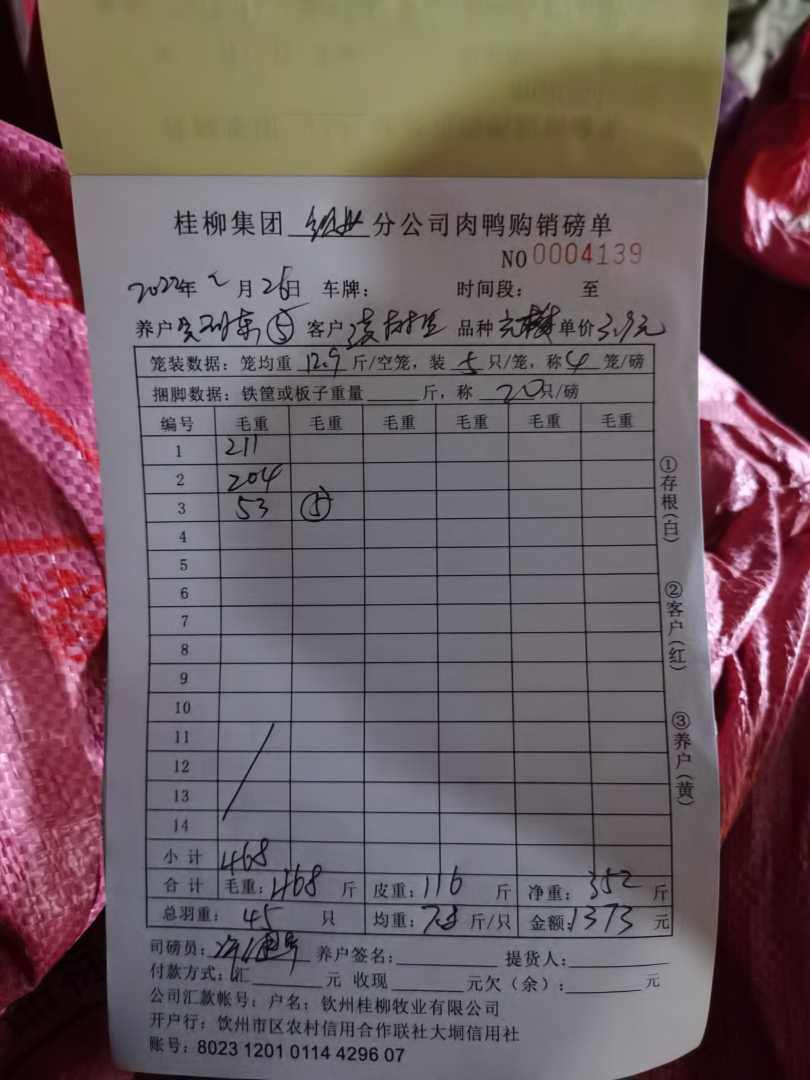 桂柳集团 钦州 分公司肉鸭购销磅单
NO 0004139
2022年 2月 26日 车牌: 时间段: 至
养户 ⑤ 客户 品种 单价 3.9元
笼装数据: 笼均重 12.9 斤/空笼, 装 5 只/笼, 称 4 笼/磅
捆脚数据: 铁筐或板子重量 斤, 称 20只/磅
编号 毛重 毛重 毛重 毛重 毛重 毛重
1 211
2 204
3 53 ⑤
4
5
6
7
8
9
10
11
12
13
14
小计 468
合计 毛重: 468 斤 皮重: 116 斤 净重: 352 斤
总羽重: 45 只 均重: 7.8 斤/只 金额: 1373 元
①存根(白)
②客户(红)
③养户(黄)
司磅员: 养户签名: 提货人:
付款方式: 汇 元 收现 元欠(余): 元
公司汇款帐号: 户名: 钦州桂柳牧业有限公司
开户行: 钦州市区农村信用合作联社大垌信用社
账号: 8023 1201 0114 4296 07